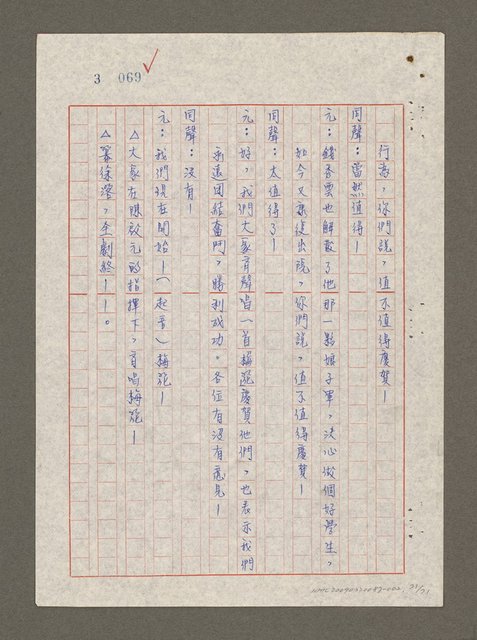 3 069
行為，你們說，值不值得慶賀！
同聲：當然值得！
元：錢香雲也解散了他那一夥娘子軍，決心做個好學生，
如今又康復出院，你們說，值不值得慶賀！
同聲：太值得了！
元：好，我們大家齊聲唱一首梅花慶賀他們，也表示我們
永遠團結奮鬥，勝利成功。各位有沒有意見！
同聲：沒有！
元：我們現在開始！（起音）梅花！
△大家在陳啟元的指揮下，齊唱梅花！
△幕徐落，全劇終！！。